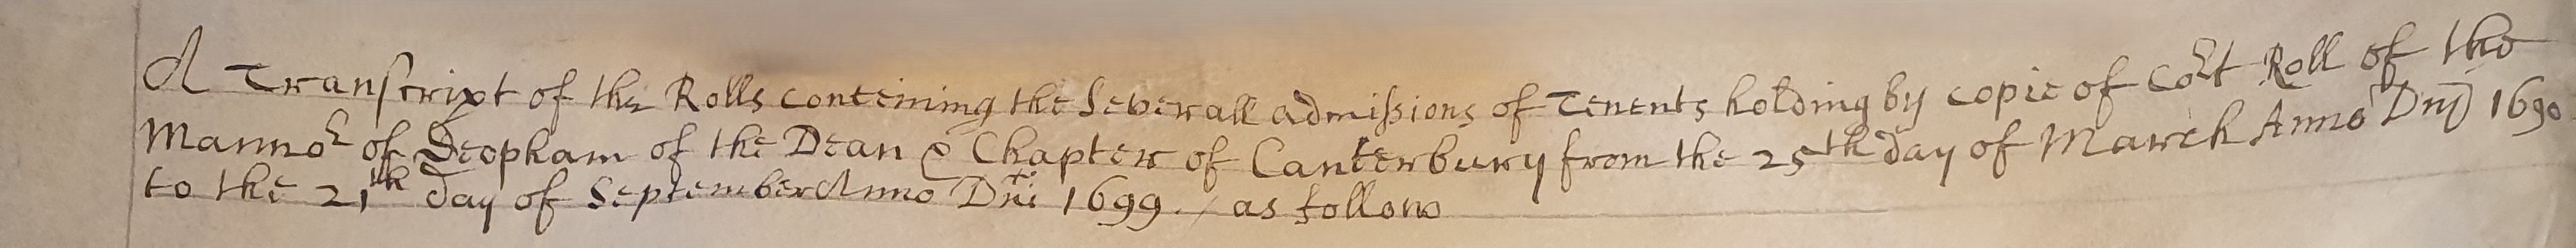 A Transcript of the Rolls conteining the Severall admissions of Tenents holding by copie of Cort Roll of the
Mannor of Deopham of the Dean & Chapter of Canterbury from the 25th day of March Anno Dnj 1690
to the 21th day of September Anno Dni 1699 ./ as follow